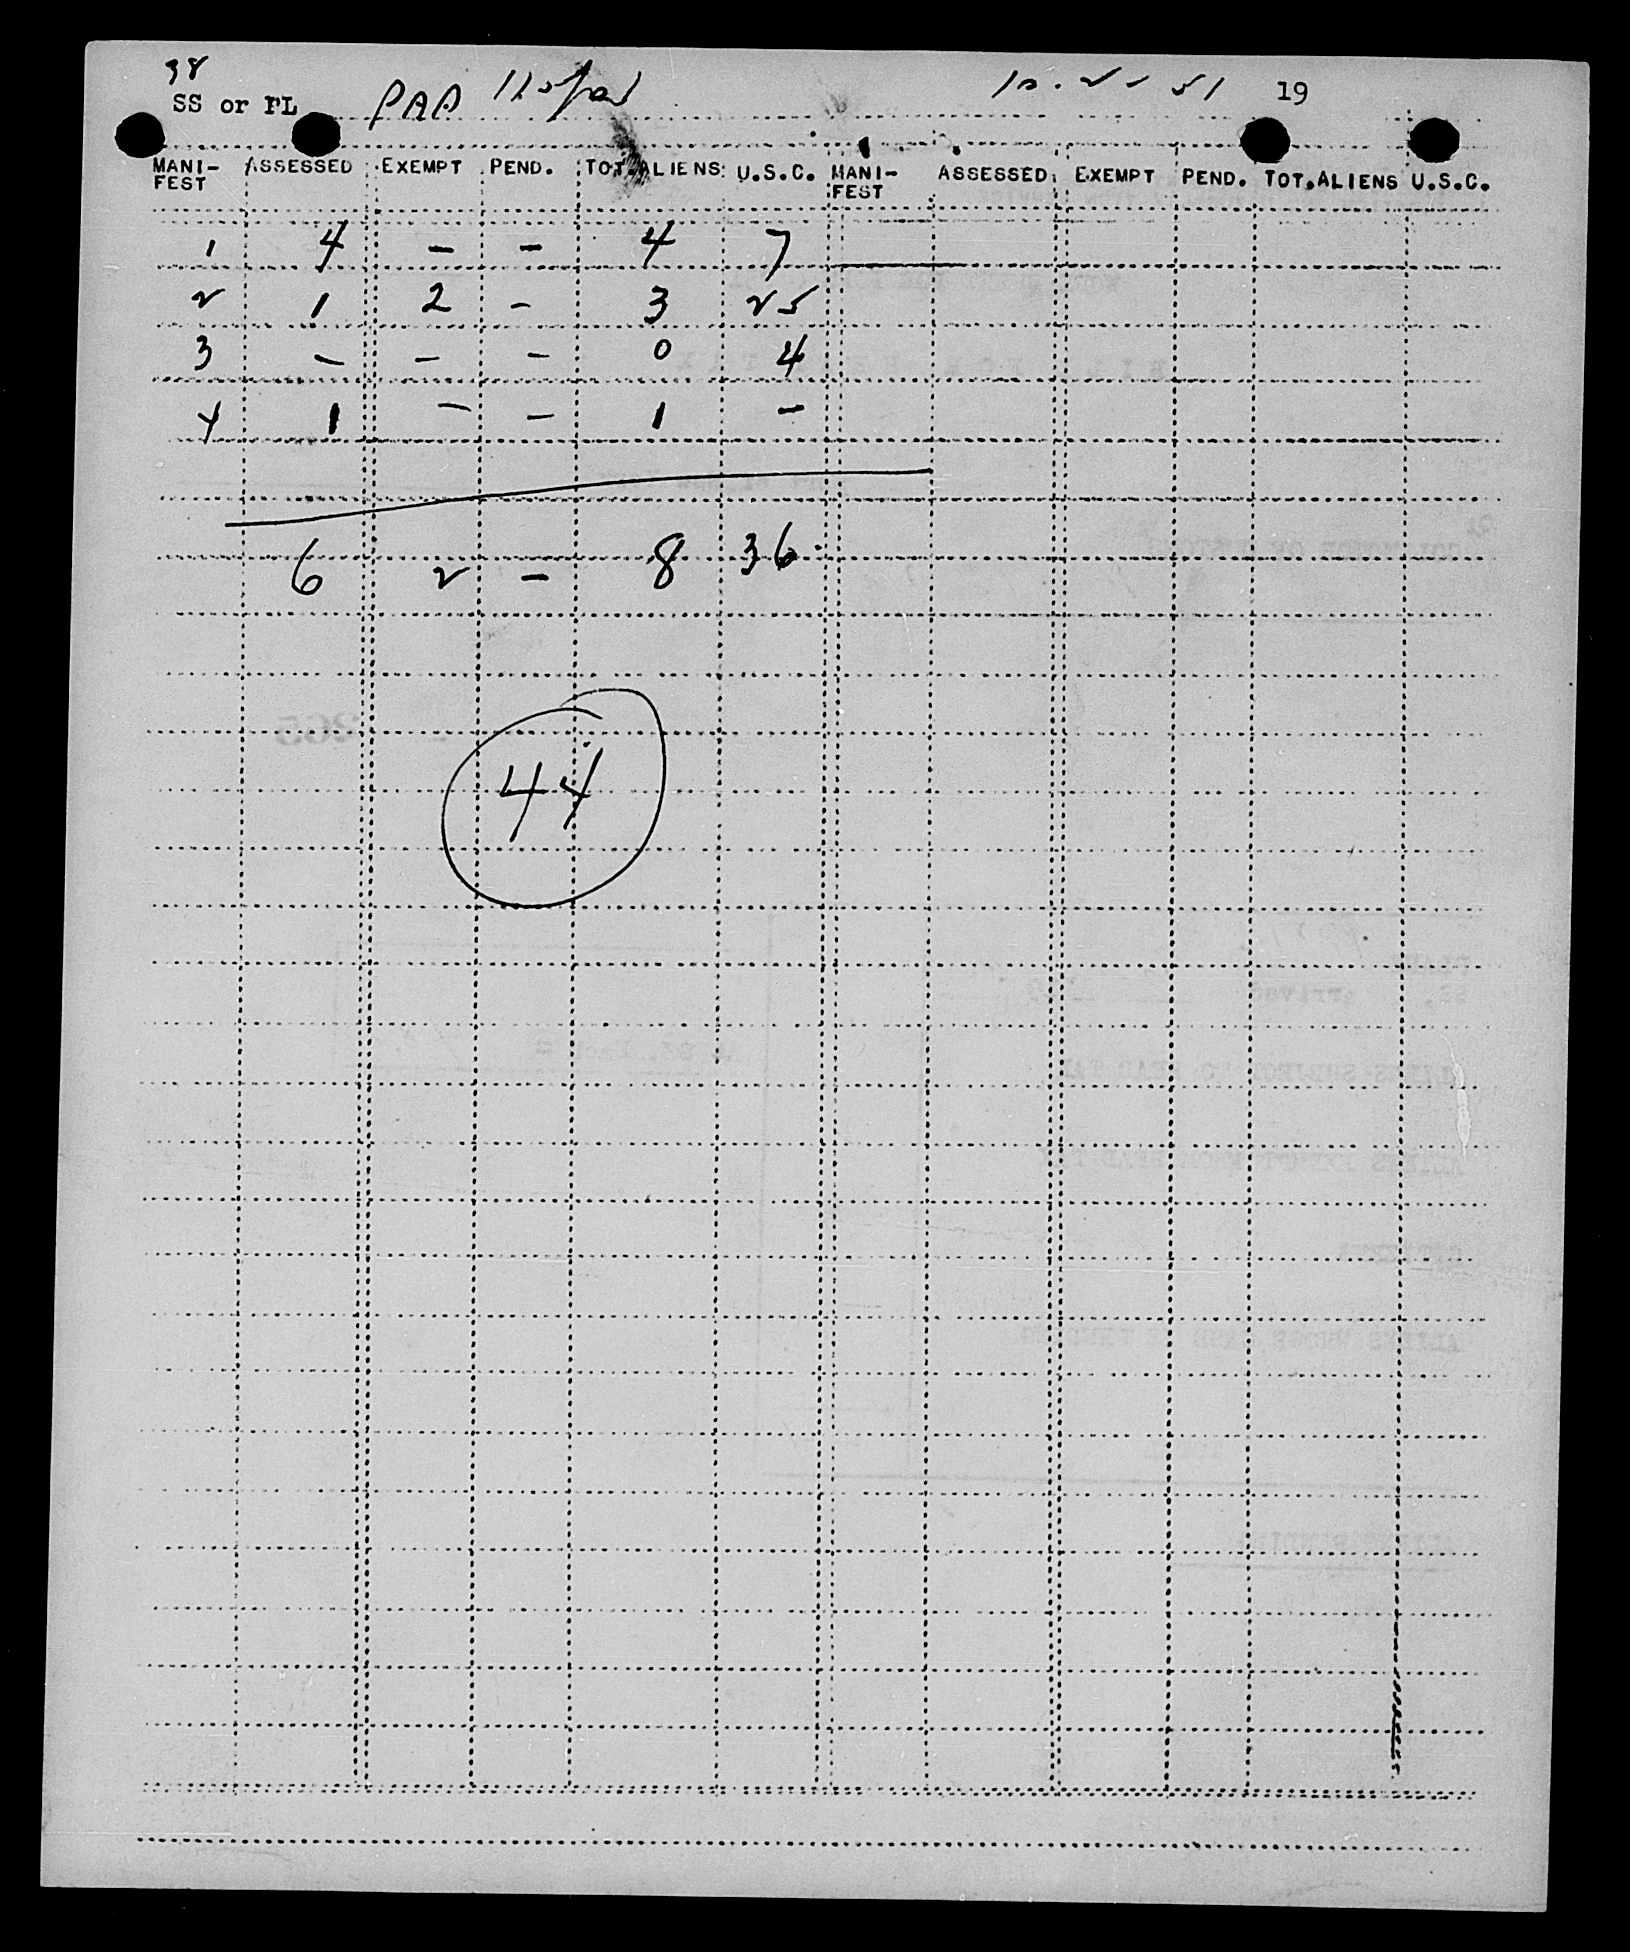 38
SS or PL PAA 19
MANI-FEST ASSESSED EXEMPT PEND. TOT.ALIENS U.S.C. MANI-FEST ASSESSED EXEMPT PEND. TOT.ALIENS U.S.C.
1 4 - - 4 7
2 1 2 - 3 25
3 - - - 0 4
4 1 - - 1 -
6 2 - 8 36
44